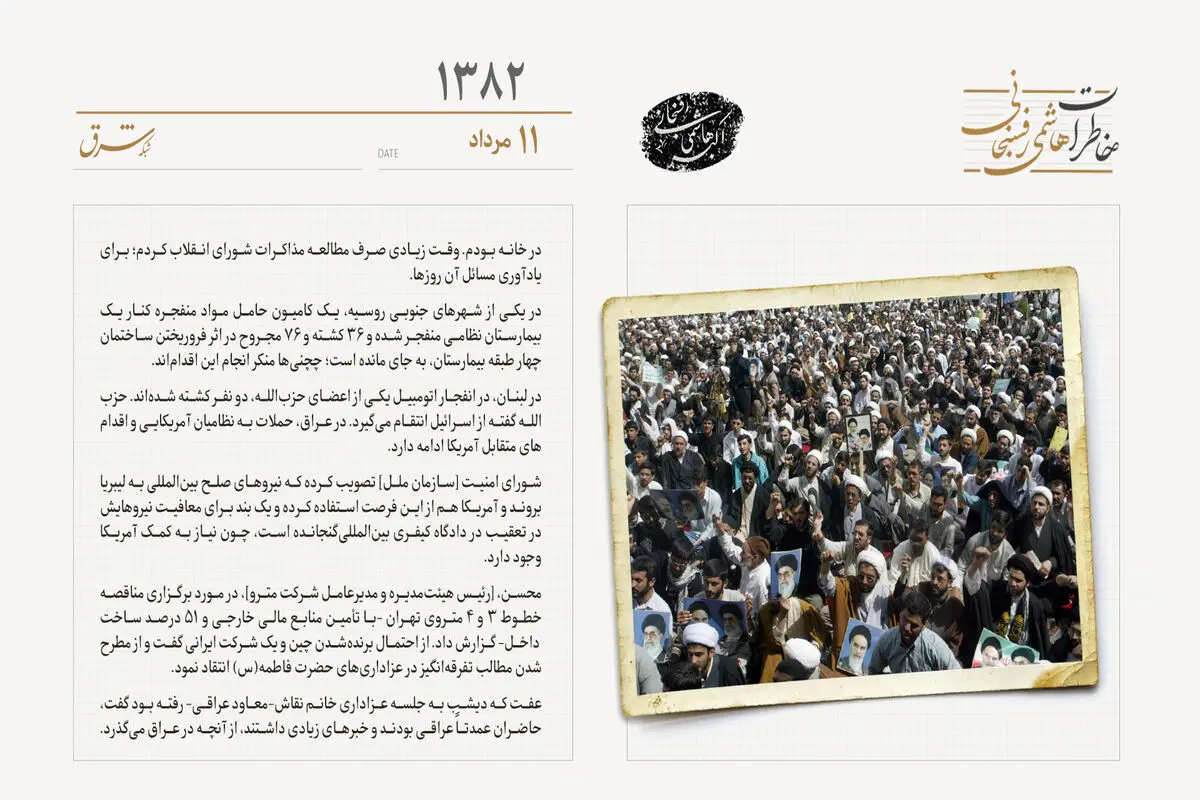 خاطرات
هاشمی رفسنجانی
اکبر هاشمی رفسنجانی
۱۳۸۲
۱۱ مرداد
DATE
شبکه شرق
در خانه بودم. وقت زیادی صرف مطالعه مذاکرات شورای انقلاب کردم؛ برای
یادآوری مسائل آن روزها.
در یکی از شهرهای جنوبی روسیه، یک کامیون حامل مواد منفجره کنار یک
بیمارستان نظامی منفجر شده و ۳۶ کشته و ۷۶ مجروح در اثر فروریختن ساختمان
چهار طبقه بیمارستان، به جای مانده است؛ چچنی‌ها منکر انجام این اقدام‌اند.
در لبنان، در انفجار اتومبیل یکی از اعضای حزب‌الله، دو نفر کشته شده‌اند. حزب
الله گفته از اسرائیل انتقام می‌گیرد. در عراق، حملات به نظامیان آمریکایی و اقدام
های متقابل آمریکا ادامه دارد.
شورای امنیت [سازمان ملل] تصویب کرده که نیروهای صلح بین‌المللی به لیبریا
بروند و آمریکا هم از این فرصت استفاده کرده و یک بند برای معافیت نیروهایش
در تعقیب در دادگاه کیفری بین‌المللی‌گنجانده است، چون نیاز به کمک آمریکا
وجود دارد.
محسن، [رئیس هیئت‌مدیره و مدیرعامل شرکت مترو]، در مورد برگزاری مناقصه
خطوط ۳ و ۴ متروی تهران -با تأمین منابع مالی خارجی و ۵۱ درصد ساخت
داخل- گزارش داد. از احتمال برنده‌شدن چین و یک شرکت ایرانی گفت و از مطرح
شدن مطالب تفرقه‌انگیز در عزاداری‌های حضرت فاطمه(س) انتقاد نمود.
عفت که دیشب به جلسه عزاداری خانم نقاش-معاود عراقی- رفته بود گفت،
حاضران عمدتاً عراقی بودند و خبرهای زیادی داشتند، از آنچه در عراق می‌گذرد.